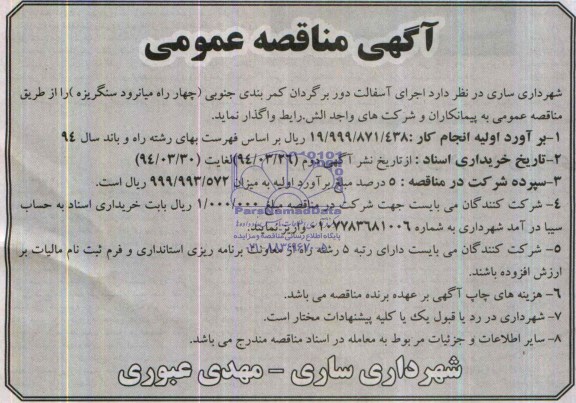 آگهی مناقصه عمومی
شهرداری ساری در نظر دارد اجرای آسفالت دور برگردان کمر بندی جنوبی (چهار راه میانرود سنگریزه )را از طریق
مناقصه عمومی به پیمانکاران و شرکت های واجد الش.رایط واگذار نماید.
۱-بر آورد اولیه انجام کار :۱۹/۹۹۹/۸۷۱/۴۳۸ ریال بر اساس فهرست بهای رشته راه و باند سال ۹۴
۲-تاریخ خریداری اسناد : ازتاریخ نشر آگهی دوم (۹۴/۰۳/۲۶)لغایت (۹۴/۰۳/۳۰)
۳-سپرده شرکت در مناقصه : ۵ درصد مبلغ برآورد اولیه به میزان ۹۹۹/۹۹۳/۵۷۲ ریال است.
۴- شرکت کنندگان می بایست جهت شرکت در مناقصه مبلغ ۱/۰۰۰/۰۰۰ ریال بابت خریداری اسناد به حساب
سیبا در آمد شهرداری به شماره ۰۱۰۷۷۸۳۶۸۱۰۰۶ واریز نمایند.
۵- شرکت کنندگان می بایست دارای رتبه ۵ رشته راه از معاونت برنامه ریزی استانداری و فرم ثبت نام مالیات بر
ارزش افزوده باشند.
۶- هزینه های چاپ آگهی بر عهده برنده مناقصه می باشد.
۷- شهرداری در رد یا قبول یک یا کلیه پیشنهادات مختار است.
۸- سایر اطلاعات و جزئیات مربوط به معامله در اسناد مناقصه مندرج می باشد.
شهرداری ساری - مهدی عبوری
ParsNamadData
پایگاه اطلاع رسانی مناقصه و مزایده